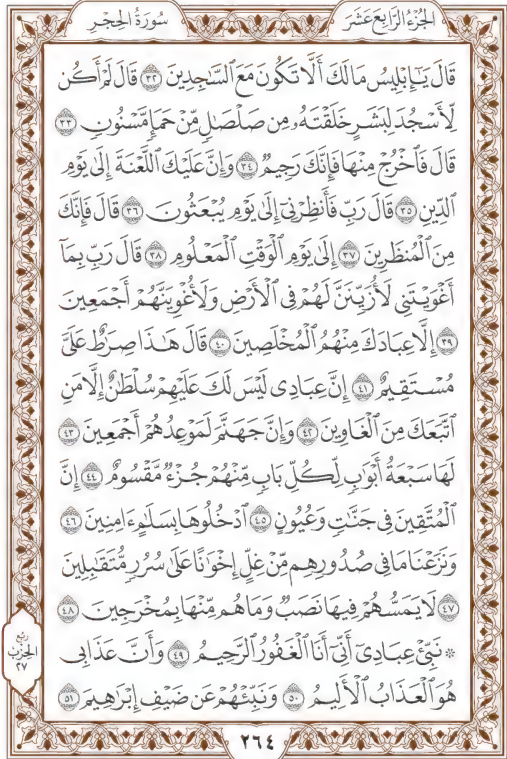 الجزء الرابع عشر
سورة الحجر
قَالَ يَـٰٓإِبْلِيسُ مَا لَكَ أَلَّا تَكُونَ مَعَ ٱلسَّـٰجِدِينَ ٣٢ قَالَ لَمْ أَكُن
لِّأَسْجُدَ لِبَشَرٍ خَلَقْتَهُۥ مِن صَلْصَـٰلٍ مِّنْ حَمَإٍ مَّسْنُونٍ ٣٣
قَالَ فَٱخْرُجْ مِنْهَا فَإِنَّكَ رَجِيمٌ ٣٤ وَإِنَّ عَلَيْكَ ٱللَّعْنَةَ إِلَىٰ يَوْمِ
ٱلدِّينِ ٣٥ قَالَ رَبِّ فَأَنظِرْنِىٓ إِلَىٰ يَوْمِ يُبْعَثُونَ ٣٦ قَالَ فَإِنَّكَ
مِنَ ٱلْمُنظَرِينَ ٣٧ إِلَىٰ يَوْمِ ٱلْوَقْتِ ٱلْمَعْلُومِ ٣٨ قَالَ رَبِّ بِمَآ
أَغْوَيْتَنِى لَأُزَيِّنَنَّ لَهُمْ فِى ٱلْأَرْضِ وَلَأُغْوِيَنَّهُمْ أَجْمَعِينَ
٣٩ إِلَّا عِبَادَكَ مِنْهُمُ ٱلْمُخْلَصِينَ ٤٠ قَالَ هَـٰذَا صِرَٰطٌ عَلَىَّ
مُسْتَقِيمٌ ٤١ إِنَّ عِبَادِى لَيْسَ لَكَ عَلَيْهِمْ سُلْطَـٰنٌ إِلَّا مَنِ
ٱتَّبَعَكَ مِنَ ٱلْغَاوِينَ ٤٢ وَإِنَّ جَهَنَّمَ لَمَوْعِدُهُمْ أَجْمَعِينَ ٤٣
لَهَا سَبْعَةُ أَبْوَٰبٍ لِّكُلِّ بَابٍ مِّنْهُمْ جُزْءٌ مَّقْسُومٌ ٤٤ إِنَّ
ٱلْمُتَّقِينَ فِى جَنَّـٰتٍ وَعُيُونٍ ٤٥ ٱدْخُلُوهَا بِسَلَـٰمٍ ءَامِنِينَ ٤٦
وَنَزَعْنَا مَا فِى صُدُورِهِم مِّنْ غِلٍّ إِخْوَٰنًا عَلَىٰ سُرُرٍ مُّتَقَـٰبِلِينَ
٤٧ لَا يَمَسُّهُمْ فِيهَا نَصَبٌ وَمَا هُم مِّنْهَا بِمُخْرَجِينَ ٤٨
۞ نَبِّئْ عِبَادِىٓ أَنِّىٓ أَنَا ٱلْغَفُورُ ٱلرَّحِيمُ ٤٩ وَأَنَّ عَذَابِى
هُوَ ٱلْعَذَابُ ٱلْأَلِيمُ ٥٠ وَنَبِّئْهُمْ عَن ضَيْفِ إِبْرَٰهِيمَ ٥١
ربع
الحزب
٢٧
٢٦٤